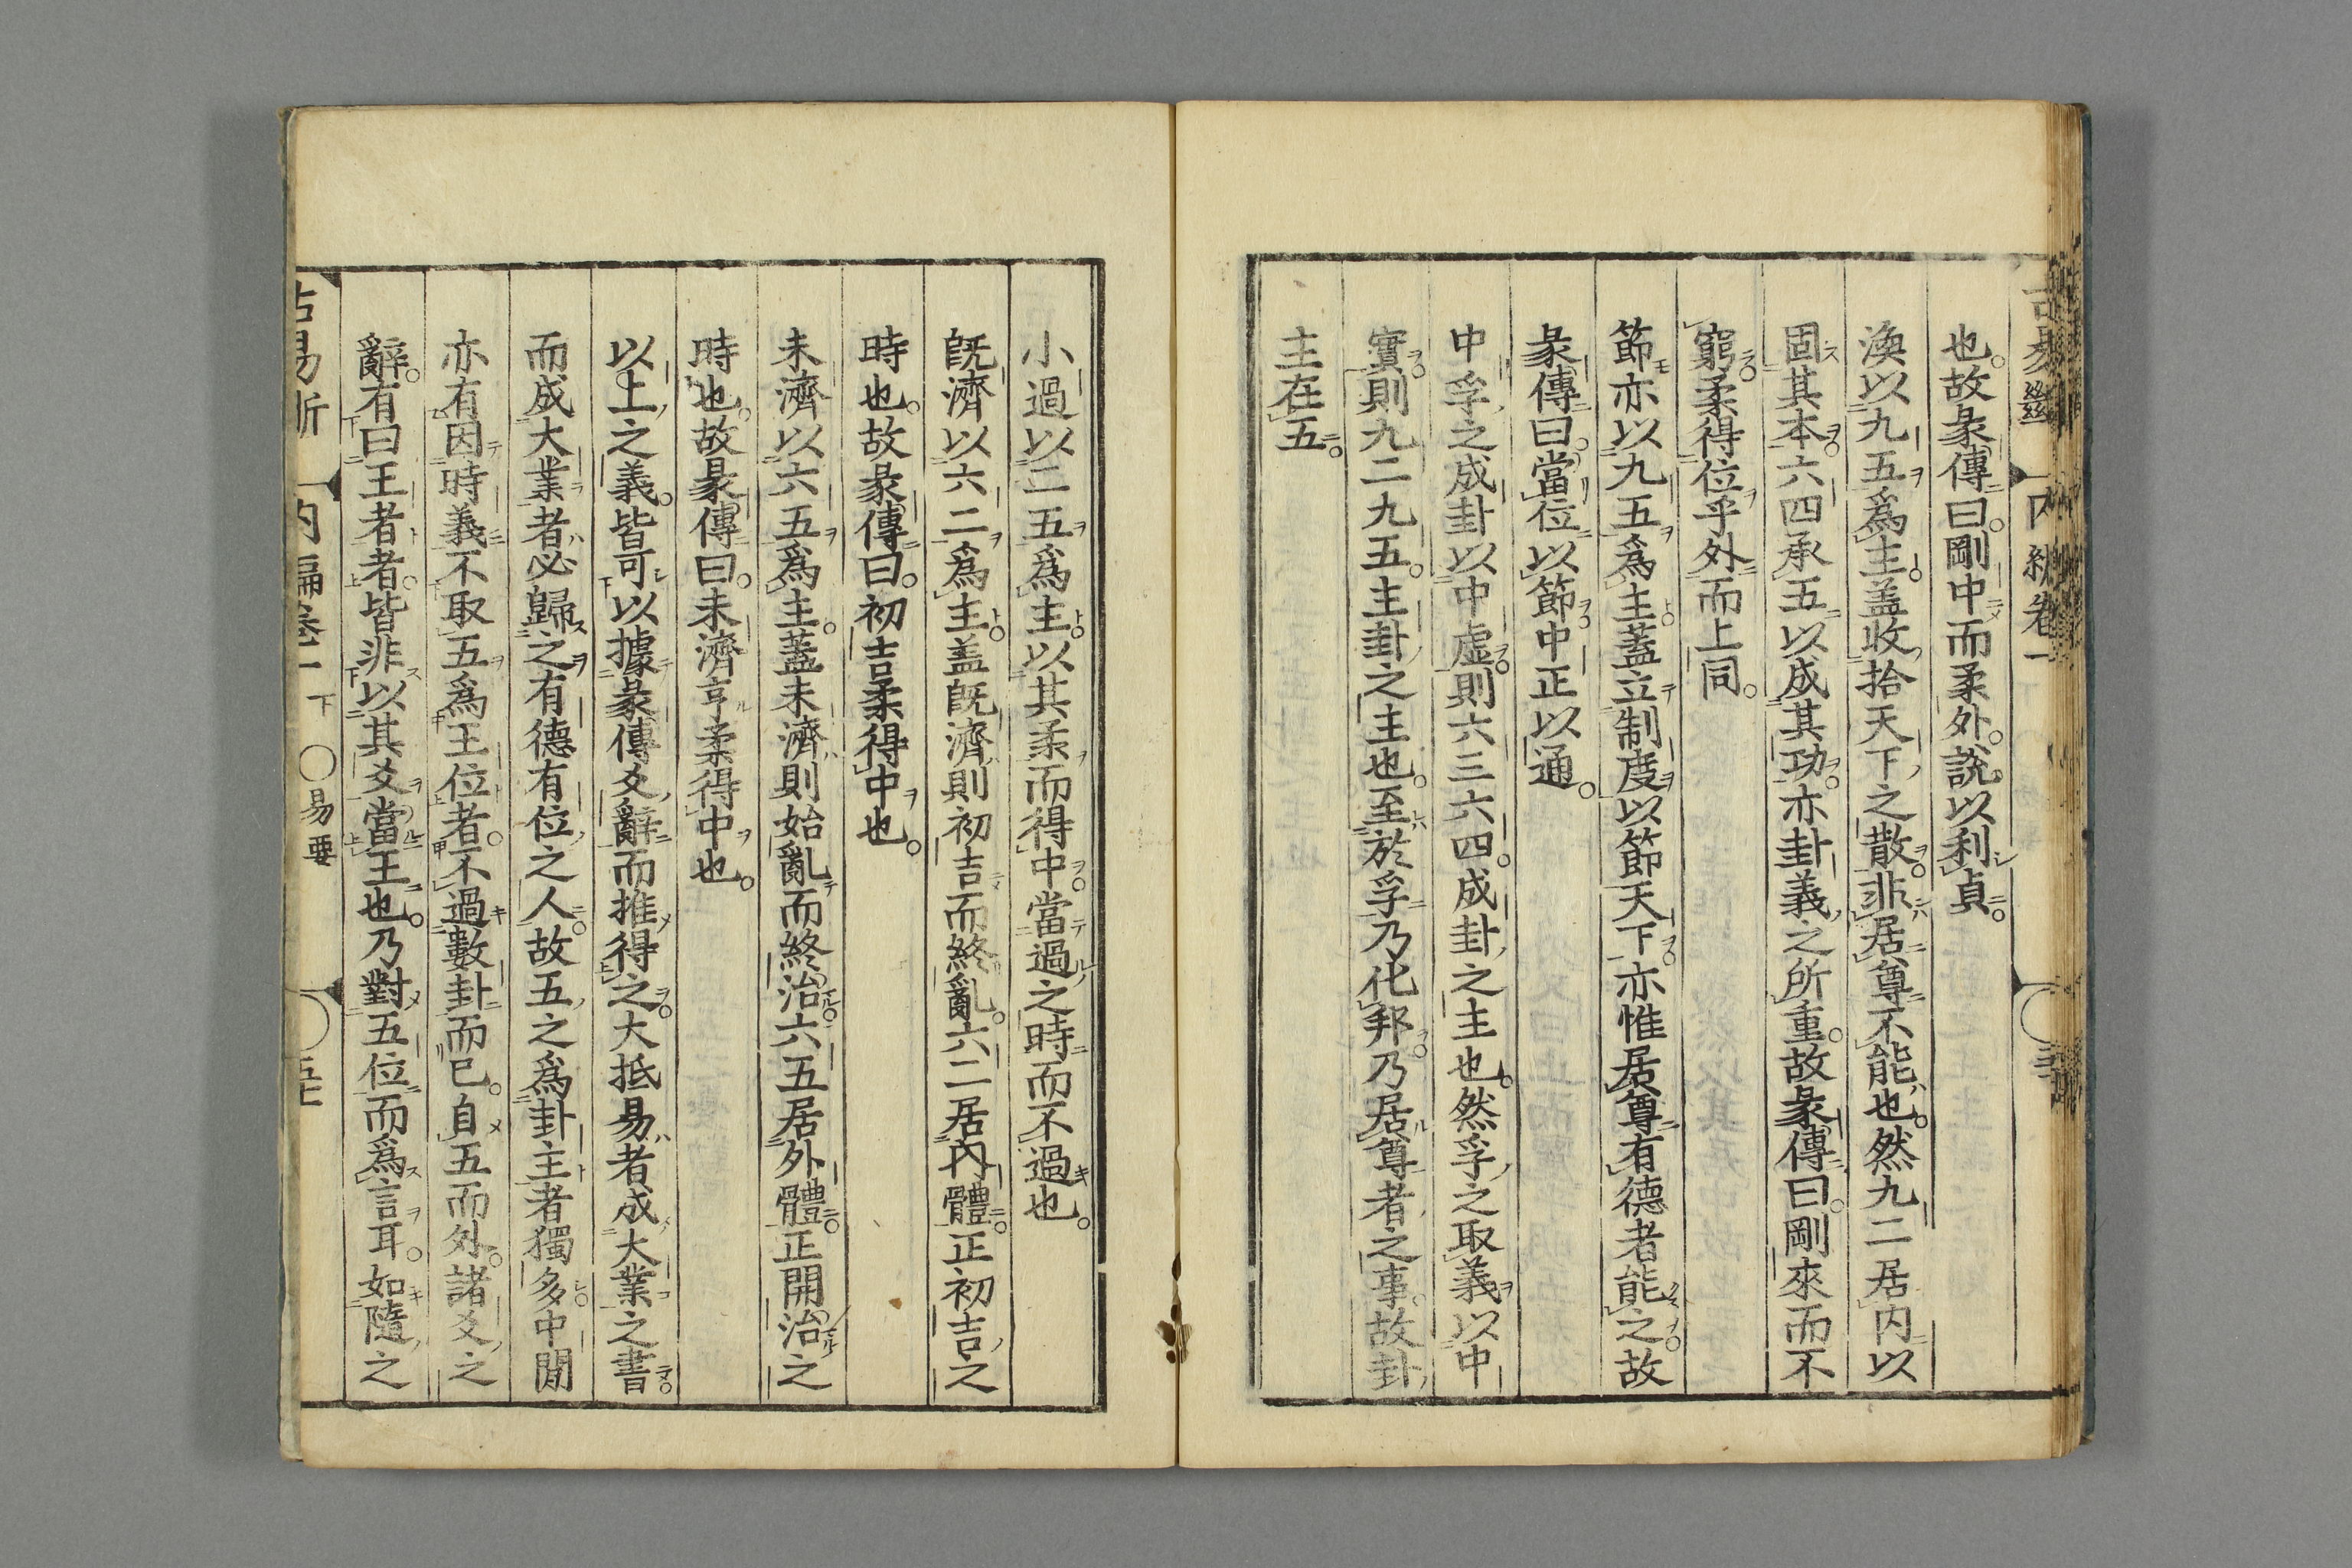 也。故彖傳曰。剛中而柔外。說以利貞。
渙以九五爲主。盖收拾天下之散。非居尊不能也。然九二居内以
固其本。六四承五以成其功。亦卦義之所重。故彖傳曰。剛來而不
窮。柔得位乎外而上同。
節亦以九五爲主。蓋立制度以節天下。亦惟居尊有德者能之。故
彖傳曰。當位以節。中正以通。
中孚之成卦以中虛。則六三六四。成卦之主也。然孚之取義以中
實。則九二九五。主卦之主也。至於孚乃化邦。乃居尊者之事。故卦
主在五。
小過以二五爲主。以其柔而得中。當過之時而不過也。
旣濟以六二爲主。盖旣濟則初吉而終亂。六二居内體。正初吉之
時也。故彖傳曰。初吉柔得中也。
未濟以六五爲主。蓋未濟則始亂而終治。六五居外體。正開治之
時也。故彖傳曰。未濟亨柔得中也。
以上之義。皆可以據彖傳爻辭而推得之。大抵易者成大業之書。
而成大業者。必歸之有德有位之人。故五之爲卦主者獨多。中間
亦有因時義不取五爲王位者。不過數卦而已。自五而外。諸爻之
辭。有曰王者者。皆非以其爻當王也。乃對五位而爲言耳。如隨之
古易斷 内編卷一 下 ○易要 五十